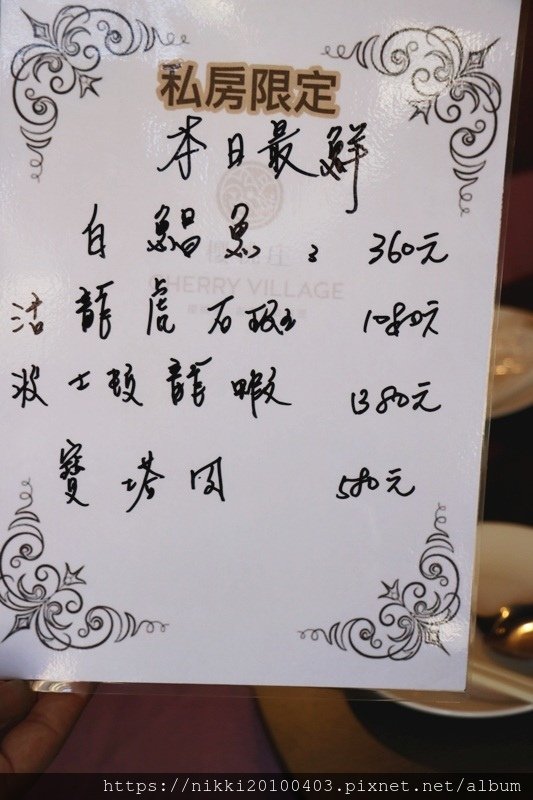 私房限定
本日最鮮
櫻 庄
CHERRY VILLAGE
白鯧魚 2 360元
活龍虎石斑 1080元
波士頓龍蝦 1380元
寶塔肉 580元
https://nikki20100403.pixnet.net/album